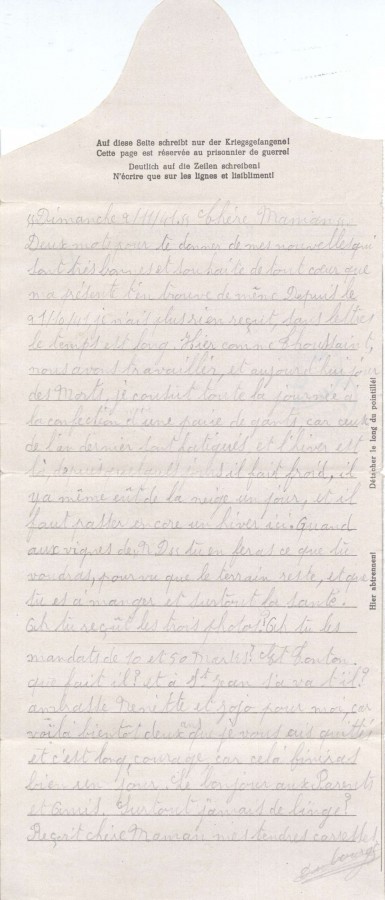 Auf diese Seite schreibt nur der Kriegsgefangene!
Cette page est réservée au prisonnier de guerre!
Deutlich auf die Zeilen schreiben!
N'écrire que sur les lignes et lisiblement!
Dimanche 2/11/41 Chère Maman
Deux mots pour te donner de mes nouvelles qui
sont très bonnes et souhaite de tout cœur que
ma présente t'en trouve de même Depuis le
je n'ais plus rien reçut, sans lettres
le temps est long. Hier comme Thoussaint,
nous avons travailler, et aujourd'hui jour
des Morts je consacre toute la journée à
la confection d'une paire de gants, car ceux
de l'an dernier sont et l'hiver est
là il fait froid, il
y a même eût de la neige un jour, et il
faut rester en core un hiver ici. Quand
aux vignes de tu en feras ce que tu
voudras, pourvu que le terrain reste, et que
tu es à manger et surtout la santé.
Ah tu reçût les trois photos? Ah tu les
mandats de 10 et 50 Marks? Et Tonton
que fait il? et à St Jean s'a va t'il?
ambrasse Nenette et Jojo pour moi, car
voilà bientôt deux ans que je vous ais quittés
et c'est long, courage, car celà finiras
bien un jour. Le bonjour aux Parents
et Amis. Surtout jamais de linge?
Reçoit chère Maman mes tendres caresses
Hier abtrennen! Détacher le long du pointillé!